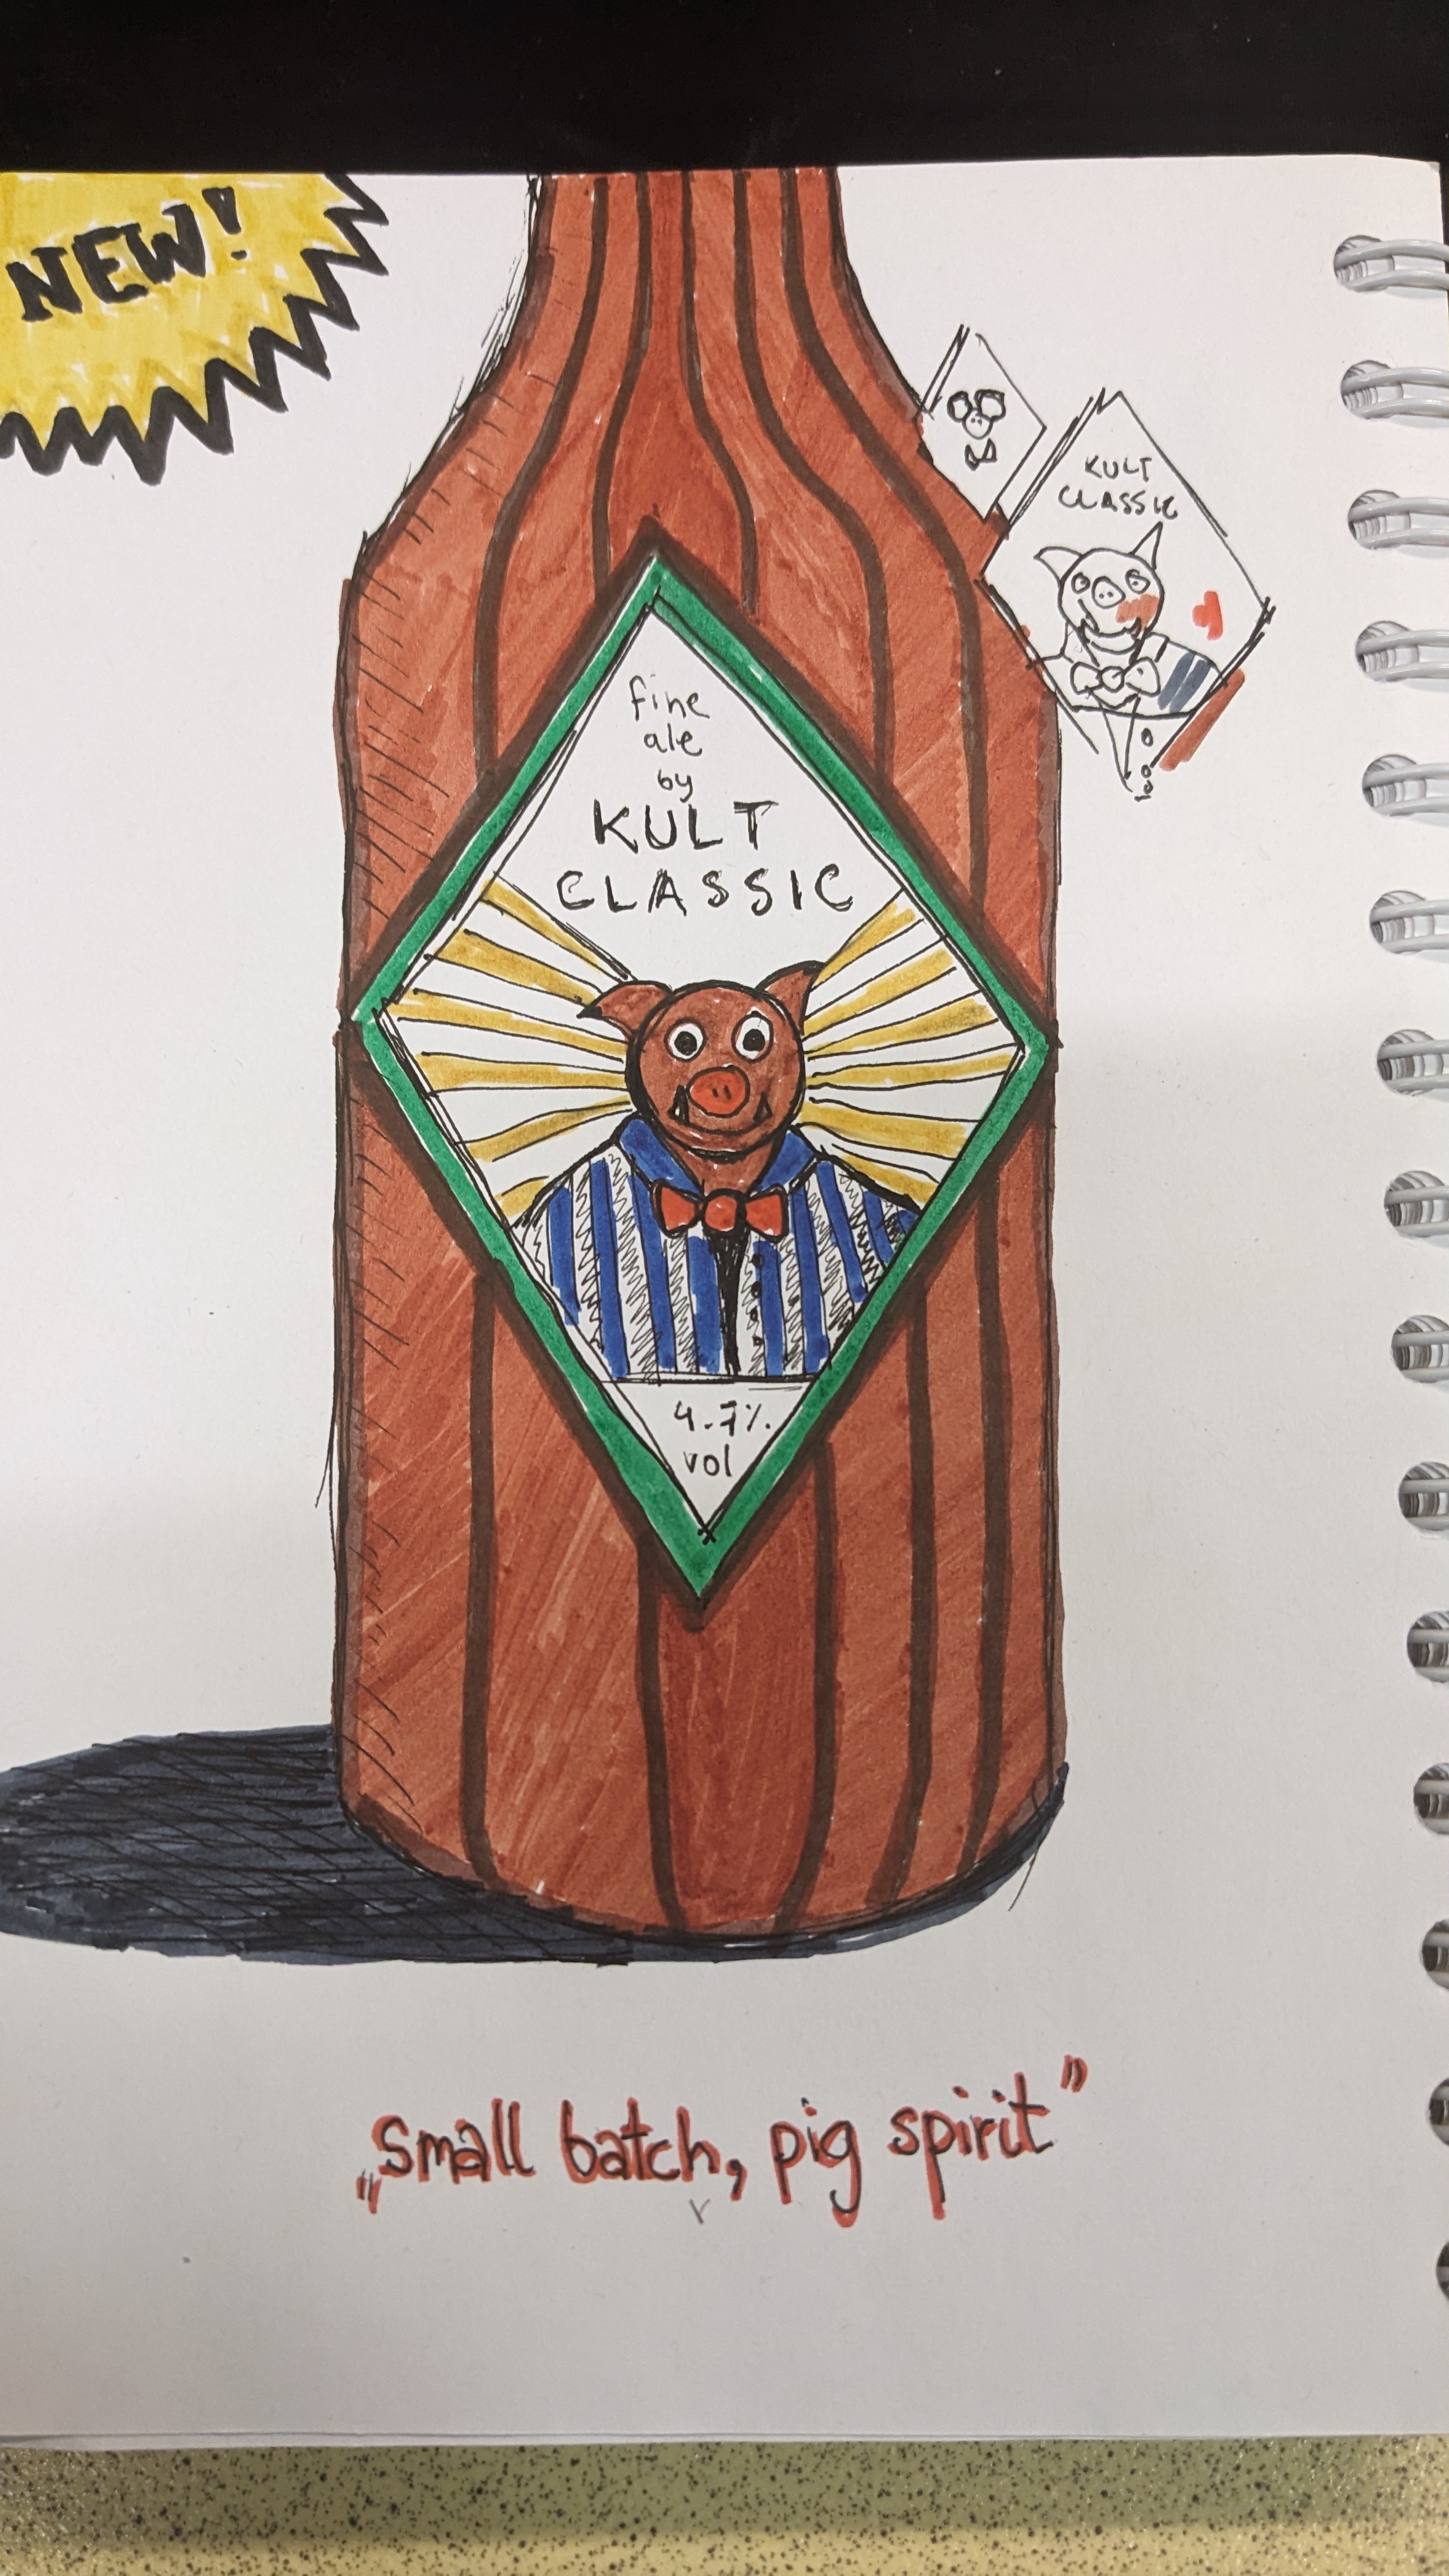 NEW!
KULT
CLASSIC
fine
ale
by
KULT
CLASSIC
4.7%
vol
„Small batch, pig spirit”